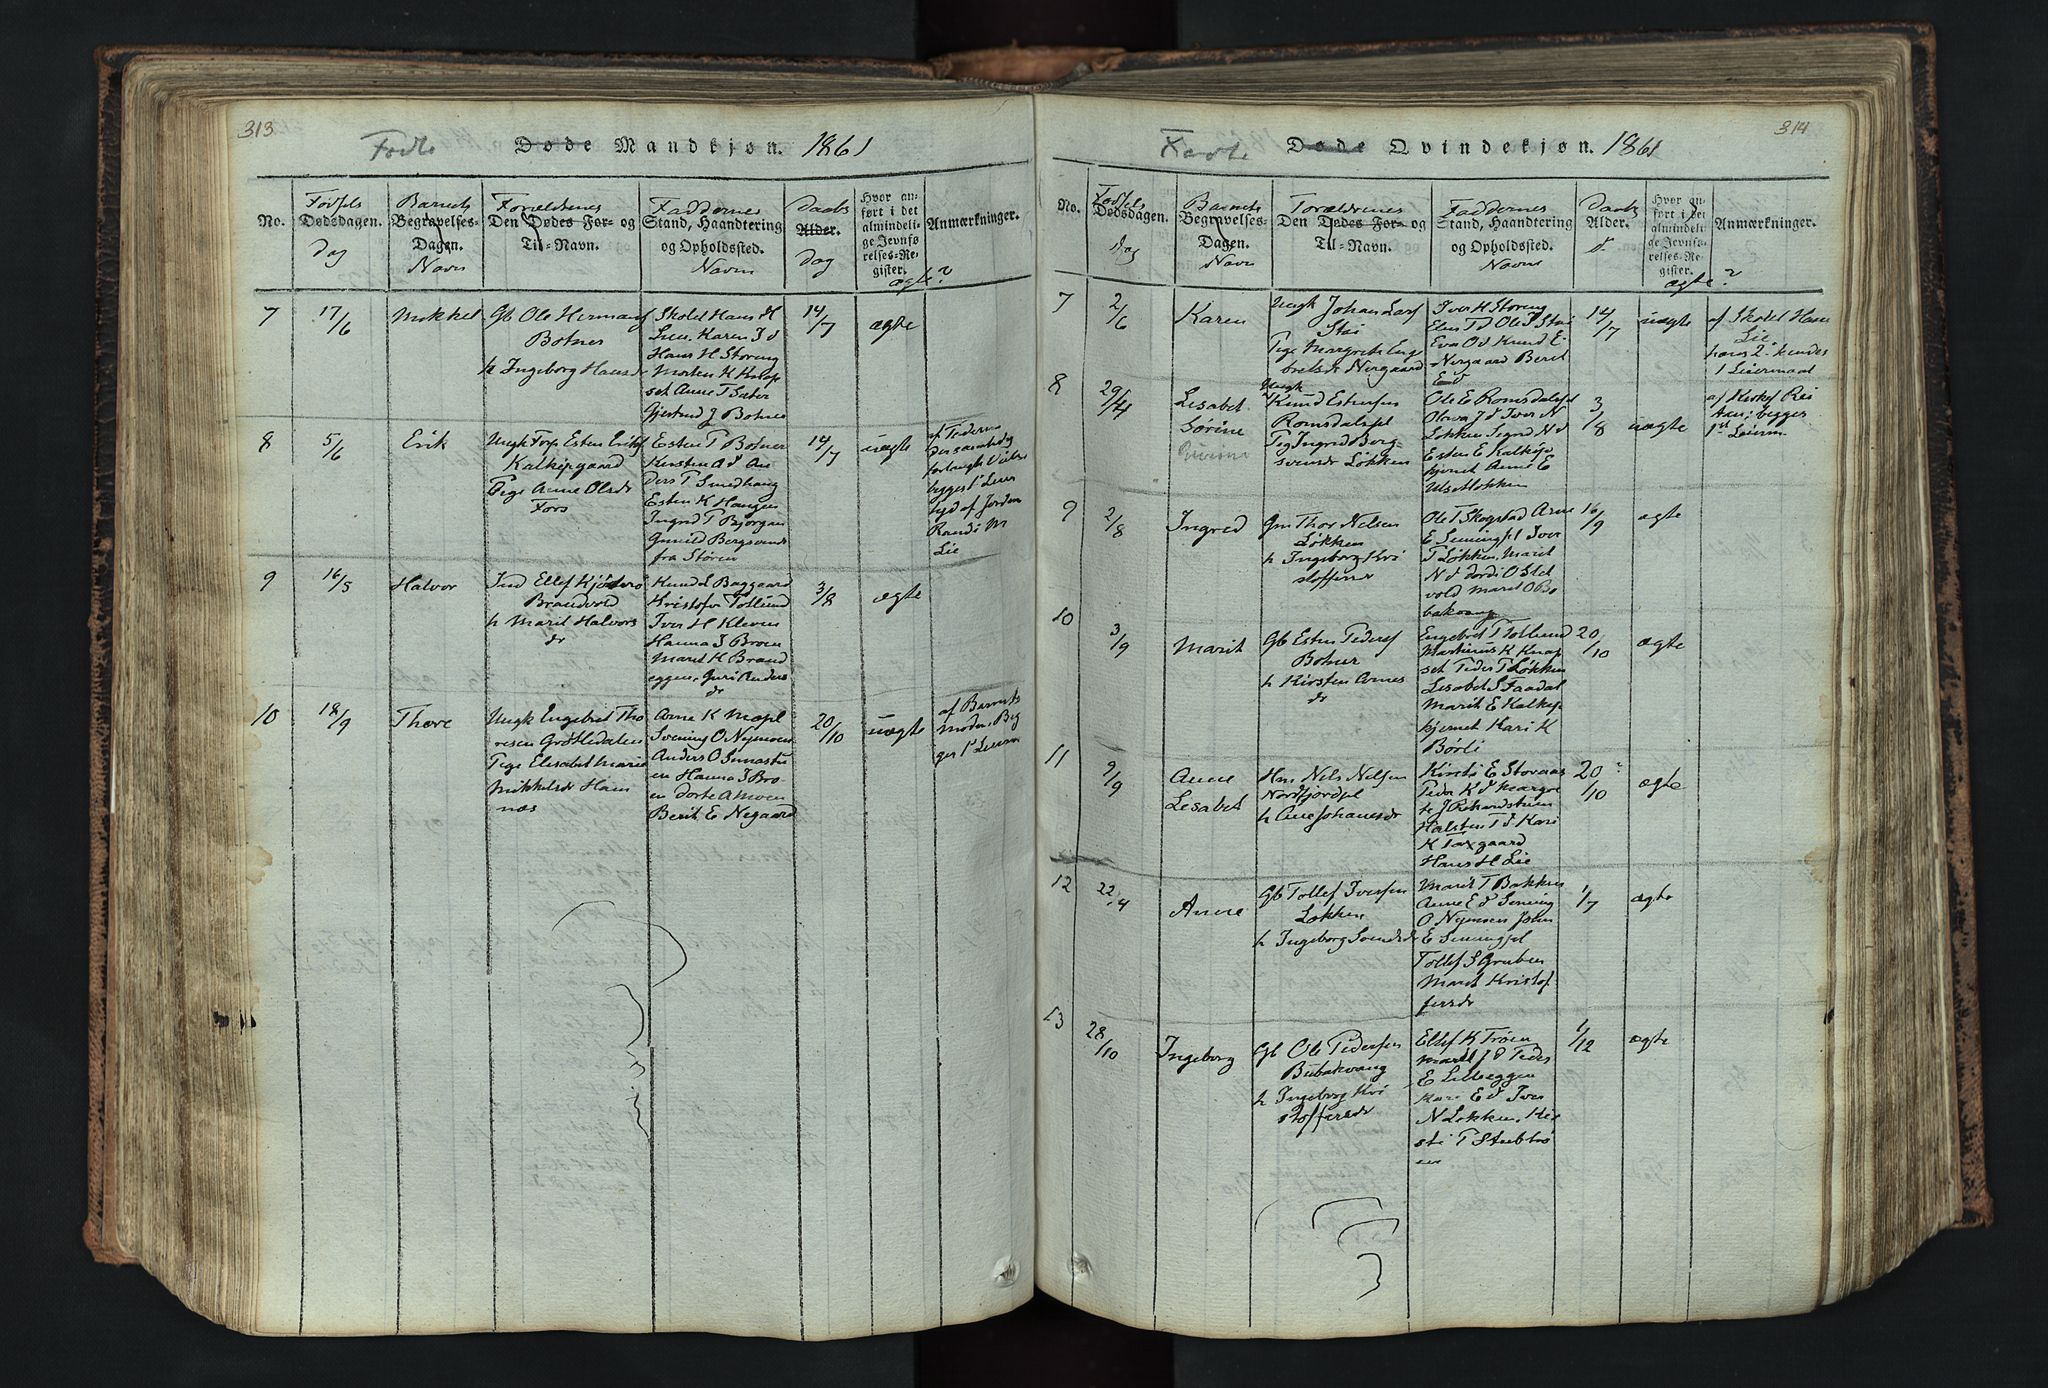 313
Fødte Døde Mandkjøn. 1861
No.
Fødsels
Dødsdagen.
Dag
Barnets
Begravelses-
Dagen.
Navn
Forældrenes
Den Dødes For- og
Til-Navn.
Faddernes
Stand, Haandtering
og Opholdssted.
Navn
Daabs
Alder.
Dag
Hvor an-
ført i det
almindeli-
ge Jevnfø-
relses-Re-
gister.
ægte?
Anmærkninger.
7
17/6
Mikkel
Gb Ole Hermans
Botner
h Ingeborg Hansdr
Skolel Hans H
Lie. Karen J d
Hans H Storeng
Morten K Knap
set Anne T Sæter
Gjertrud J Botner
14/7
ægte
8
5/6
Erik
Ungk Esten Eriks
Pige Anne Olsdr
Fors
Esten P Botner
Kirsten A d An
ders T Smedhaug
Esten K Haugen
Ingrid T Bjørgan
Gunild Bergsvendr
fra Støren
14/7
uægte
af Faderen
begges 1ste Leier
Lie
9
16/5
Halvor
Ind Ellef Kjøstens
Brandvold
h Marit Halvors
dr
Knud L Baggaard
Kristofer Tollund
Iver H Kleven
Hanna J Broen
Marit H Brand
eggen, Guri Anders
dr
3/8
ægte
10
18/9
Thore
Ungk Engebret Tho
resen Grøtlidalen
Pige Elisabet Marie
Mikkelsdr Ham
næs
Arne K Møpl
Svening O Nymoen
Anders O
en Hanna J Bro
en Dorte A Moen
Berit E Negaard
20/10
uægte
af Barnets
Moder. Beg
ges 1ste Leierm
314
Fødte Døde Qvindekjøn. 1861
No.
Fødsels
Dødsdagen.
Dag
Barnets
Begravelses-
Dagen.
Navn
Forældrenes
Den Dødes For- og
Til-Navn.
Faddernes
Stand, Haandtering
og Opholdssted.
Navne
Daabs
Alder.
d
Hvor an-
ført i det
almindeli-
ge Jevnfø-
relses-Re-
gister.
ægte?
Anmærkninger.
7
2/6
Karen
Ungk Johan Lars
Stai
Pige Margrete Eng
bretsdr Nergaard
Iver H Storeng
Elen T d Ole P Stai
Eva O d Knud E
Nergaard Beret
E d
14/7
uægte
af Skolel Hans
Lie.
hans 2. hendes
1 Leiermaal
8
29/4
Lisabet
Sørine
Ungk
Knud Estensen
Romsdalspl
Pig Ingrid Berg-
svensdr Løkken
Ole E Romsdalspl
Olava J d Iver N
Løkken Sigrid N d
Esten E Kalkkjø
kjernet Anne E
3/8
uægte
begges
1ste Leierm
9
2/8
Ingrid
Gm Thor Nelsen
Løkken
h Ingeborg Kri
stoffersdr
Ole T Skogstad Arne
E Svenningpl Iver
T Løkken, Marit
N d Jordi O Stel
vold Marit O Bo
bakvang
16/9
ægte
10
3/9
Marit
Gb Esten Peders
Botner
h Kirsten Arnes
dr
Engebret T Tollund
Martinus K Knap
set Peder T Løkken
Lisabet S Faadal
Marit E Kalkkjø
kjernet Kari K
Børli
20/10
ægte
11
9/9
Anne
Lisabet
Hm Nels Nelsen
Nordfjordpl
h Ane Johanesdr
Kirsti E Stovaas
Peder K d Margre
te J Rikardstrøen
Halsten T d Kari
K Taxgaard
Hans H Lie
20/10
ægte
12
22/4
Anne
Gb Tollef Iversen
Løkken
h Ingeborg Svendsdr
Marit T Bakken
Anne E d Svening
O Nymoen John
E Svenningpl
Tollef S Gruben
Marit Kristof
fersdr
1/7
ægte
13
28/10
Ingeborg
Gb Ole Pedersen
Bubakvang
h Ingeborg Kri
stoffersdr
Ellef K Trøen
Marit J d Peder
E Lilleeggen
Kari E d Iver
N Løkken. Kir
sti P Stubbrø
en
1/12
ægte